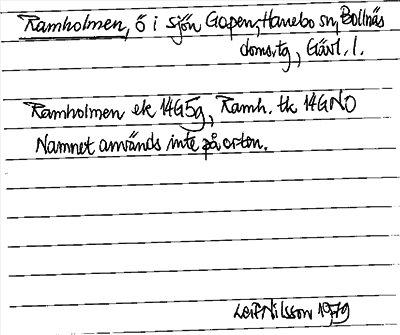 Ramholmen, ö i sjön Gopen, Hanebo sn, Bollnäs
doms.tg, Gävl. l.
Ramholmen ek 14G5g, Ramh. tk 14GNO
Namnet används inte på orten.
Leif Nilsson 1979